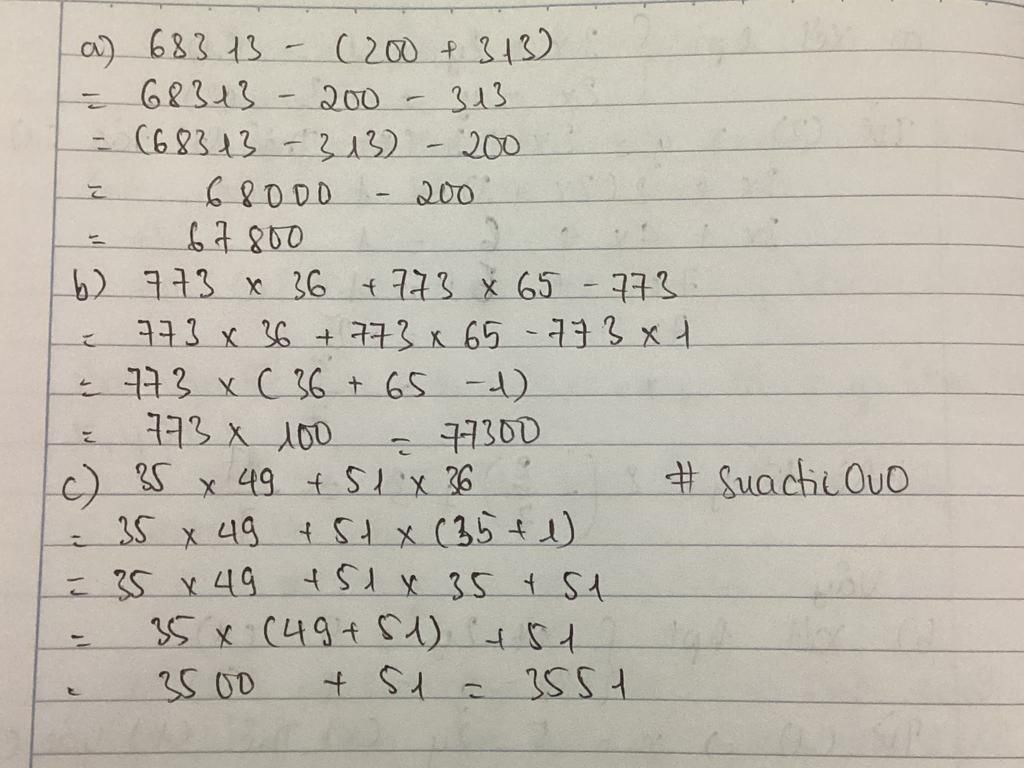 a) 68313 - (200 + 313)
= 68313 - 200 - 313
= (68313 - 313) - 200
= 68000 - 200
= 67800
b) 773 x 36 + 773 x 65 - 773
= 773 x 36 + 773 x 65 - 773 x 1
= 773 x (36 + 65 - 1)
= 773 x 100 = 77300
c) 35 x 49 + 51 x 36 # SuachiOuO
= 35 x 49 + 51 x (35 + 1)
= 35 x 49 + 51 x 35 + 51
= 35 x (49 + 51) + 51
= 3500 + 51 = 3551